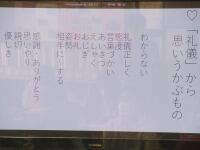 ♡「礼儀」から
思いうかぶもの
わからない
礼儀正しく
態度
言葉づかい
あいさつ
えしゃく
おじぎ
お礼
姿勢
相手に〜する
感謝・ありがとう
思いやり
親切
優しさ